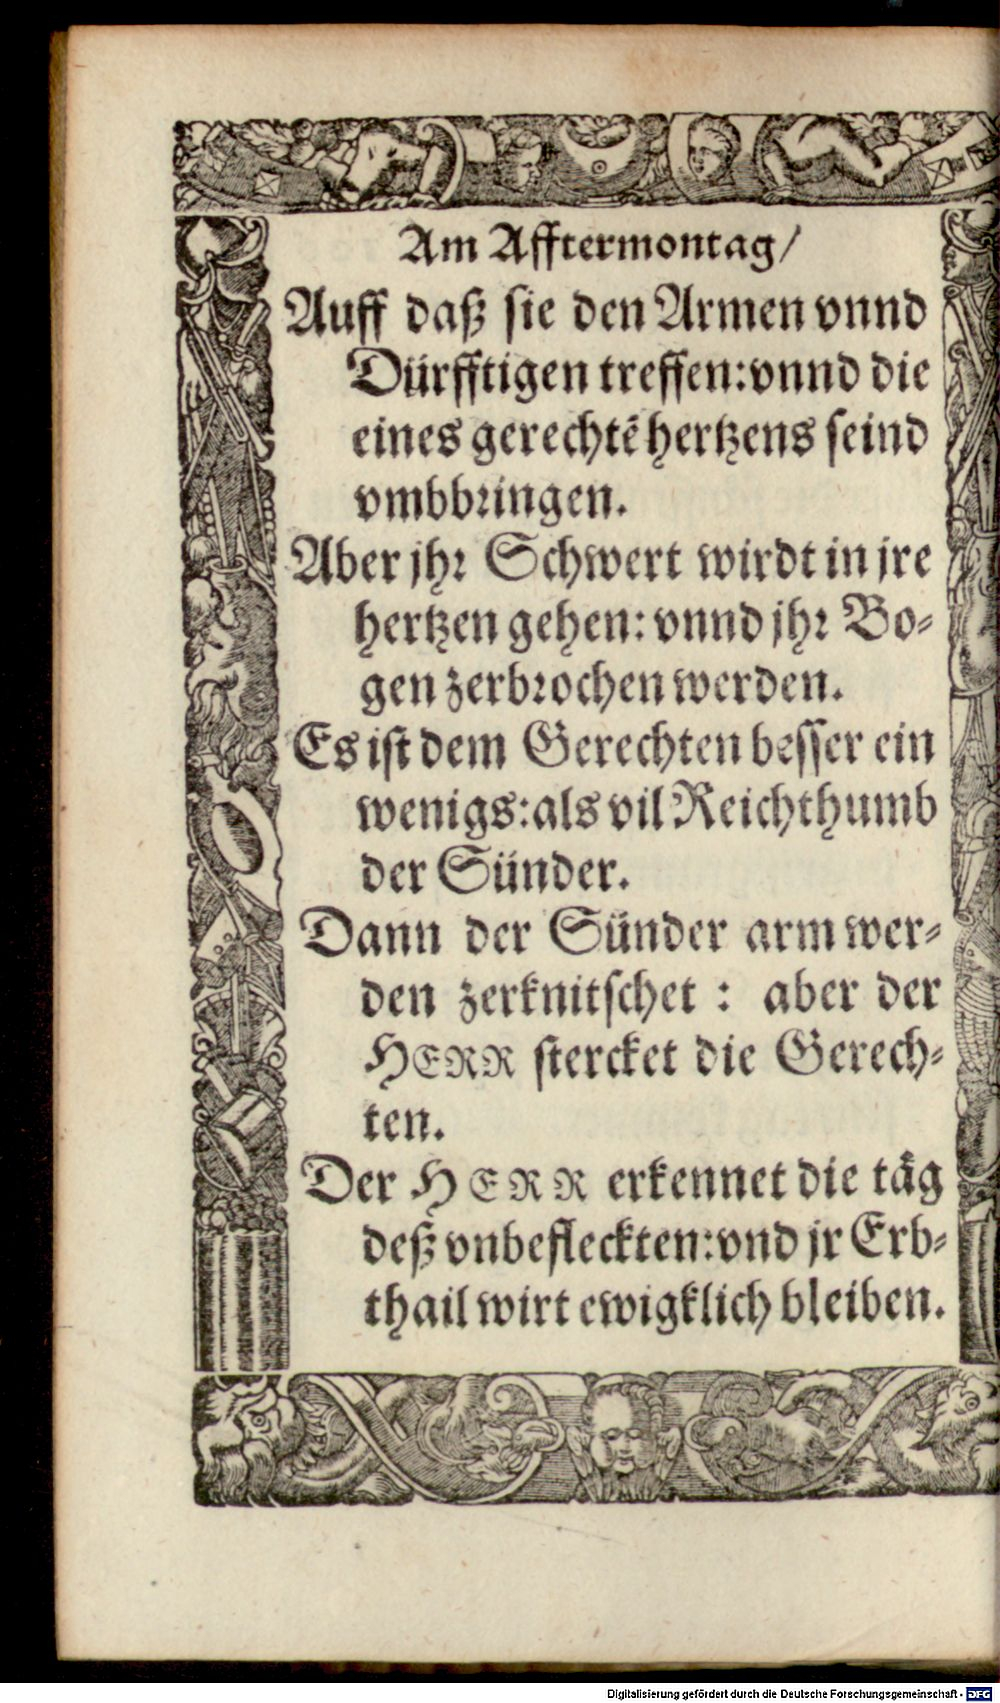 Am Afftermontag/
Auff daß sie den Armen vnnd
Dürfftigen treffen: vnnd die
eines gerechtē hertzens seind
vmbbringen.
Aber jhr Schwert wirdt in jre
hertzen gehen: vnnd jhr Bo-
gen zerbrochen werden.
Es ist dem Gerechten besser ein
wenigs: als vil Reichthumb
der Sünder.
Dann der Sünder arm wer-
den zerknitschet : aber der
HERR stercket die Gerech-
ten.
Der HERR erkennet die täg
deß vnbefleckten: vnd jr Erb-
thail wirt ewigklich bleiben.
Digitalisierung gefördert durch die Deutsche Forschungsgemeinschaft - DFG